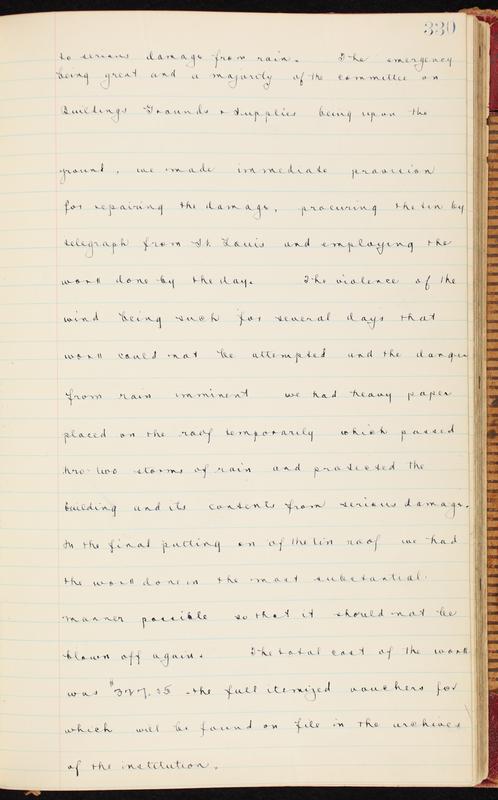 330
to serious damage from rain. The emergency
being great and a majority of the committee on
Buildings Grounds & Supplies being upon the
ground, we made immediate provision
for repairing the damage, procuring the tin by
telegraph from St. Louis and employing the
work done by the day. The violence of the
wind being such for several days that
work could not be attempted and the danger
from rain imminent we had heavy paper
placed on the roof temporarily which passed
thro two storms of rain and protected the
building and its contents from serious damage.
In the final putting on of the tin roof we had
the work done in the most substantial
manner possible so that it should not be
blown off again. The total cost of the work
was the full itemized vouchers for
which will be found on file in the archives
of the institution.